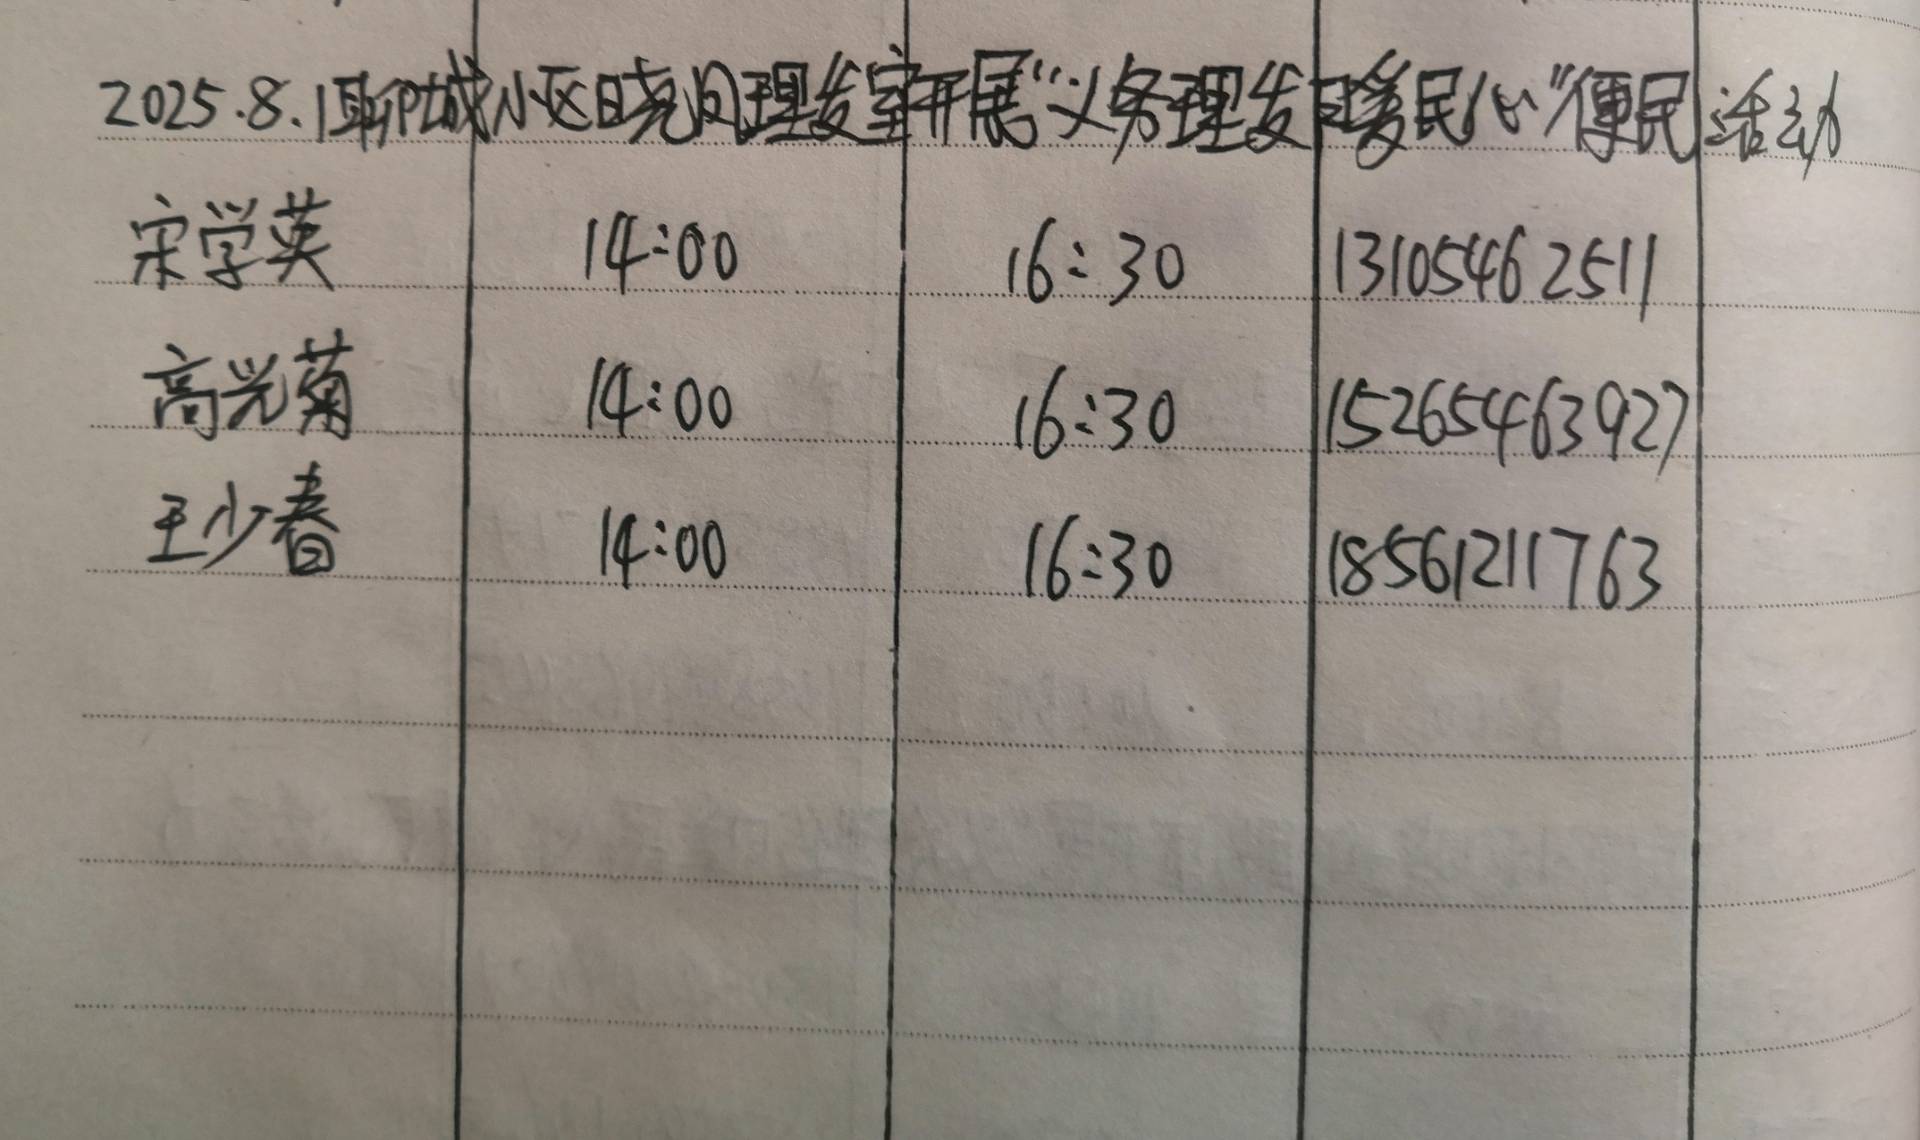 2025.8.1聊城小区晓风理发室开展“义务理发暖民心”便民活动
宋学英 14:00 16:30 13105462511
高兴菊 14:00 16:30 15265463927
王少春 14:00 16:30 18561211763